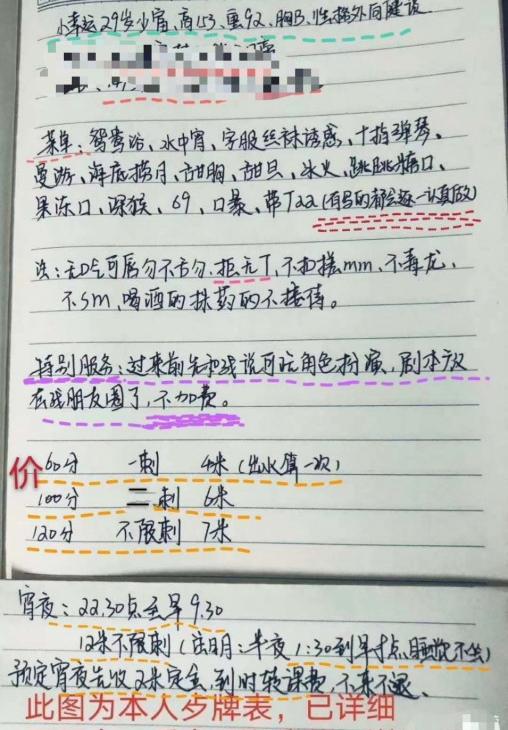 小幸运29岁少富,高153,重92,胸B,性格外向健谈
菜单:鸳鸯浴、水中宵、字服丝袜诱惑、十指弹琴、
曼游、海底捞月、甜胸、甜旦、冰火、跳跳糖口、
果冻口、深猴、69、口暴、带T22(有写的都会逐一认真做)
法:无口气可唇勿不舌勿、拒无T、不扣搓mm、不毒龙、
不sm,喝酒的抹药的不接待。
特别服务:过来前先和我说可玩角色扮演,剧本放
在我朋友圈了,不加费。
价 60分 一刺 4米(出水算一次)
100分 二刺 6米
120分 不限刺 7米
宵夜:22.30点至早9.30
12米不限刺
预定宵夜先收2米定金,到时转课费,不来不退、
此图为本人步牌表,已详细